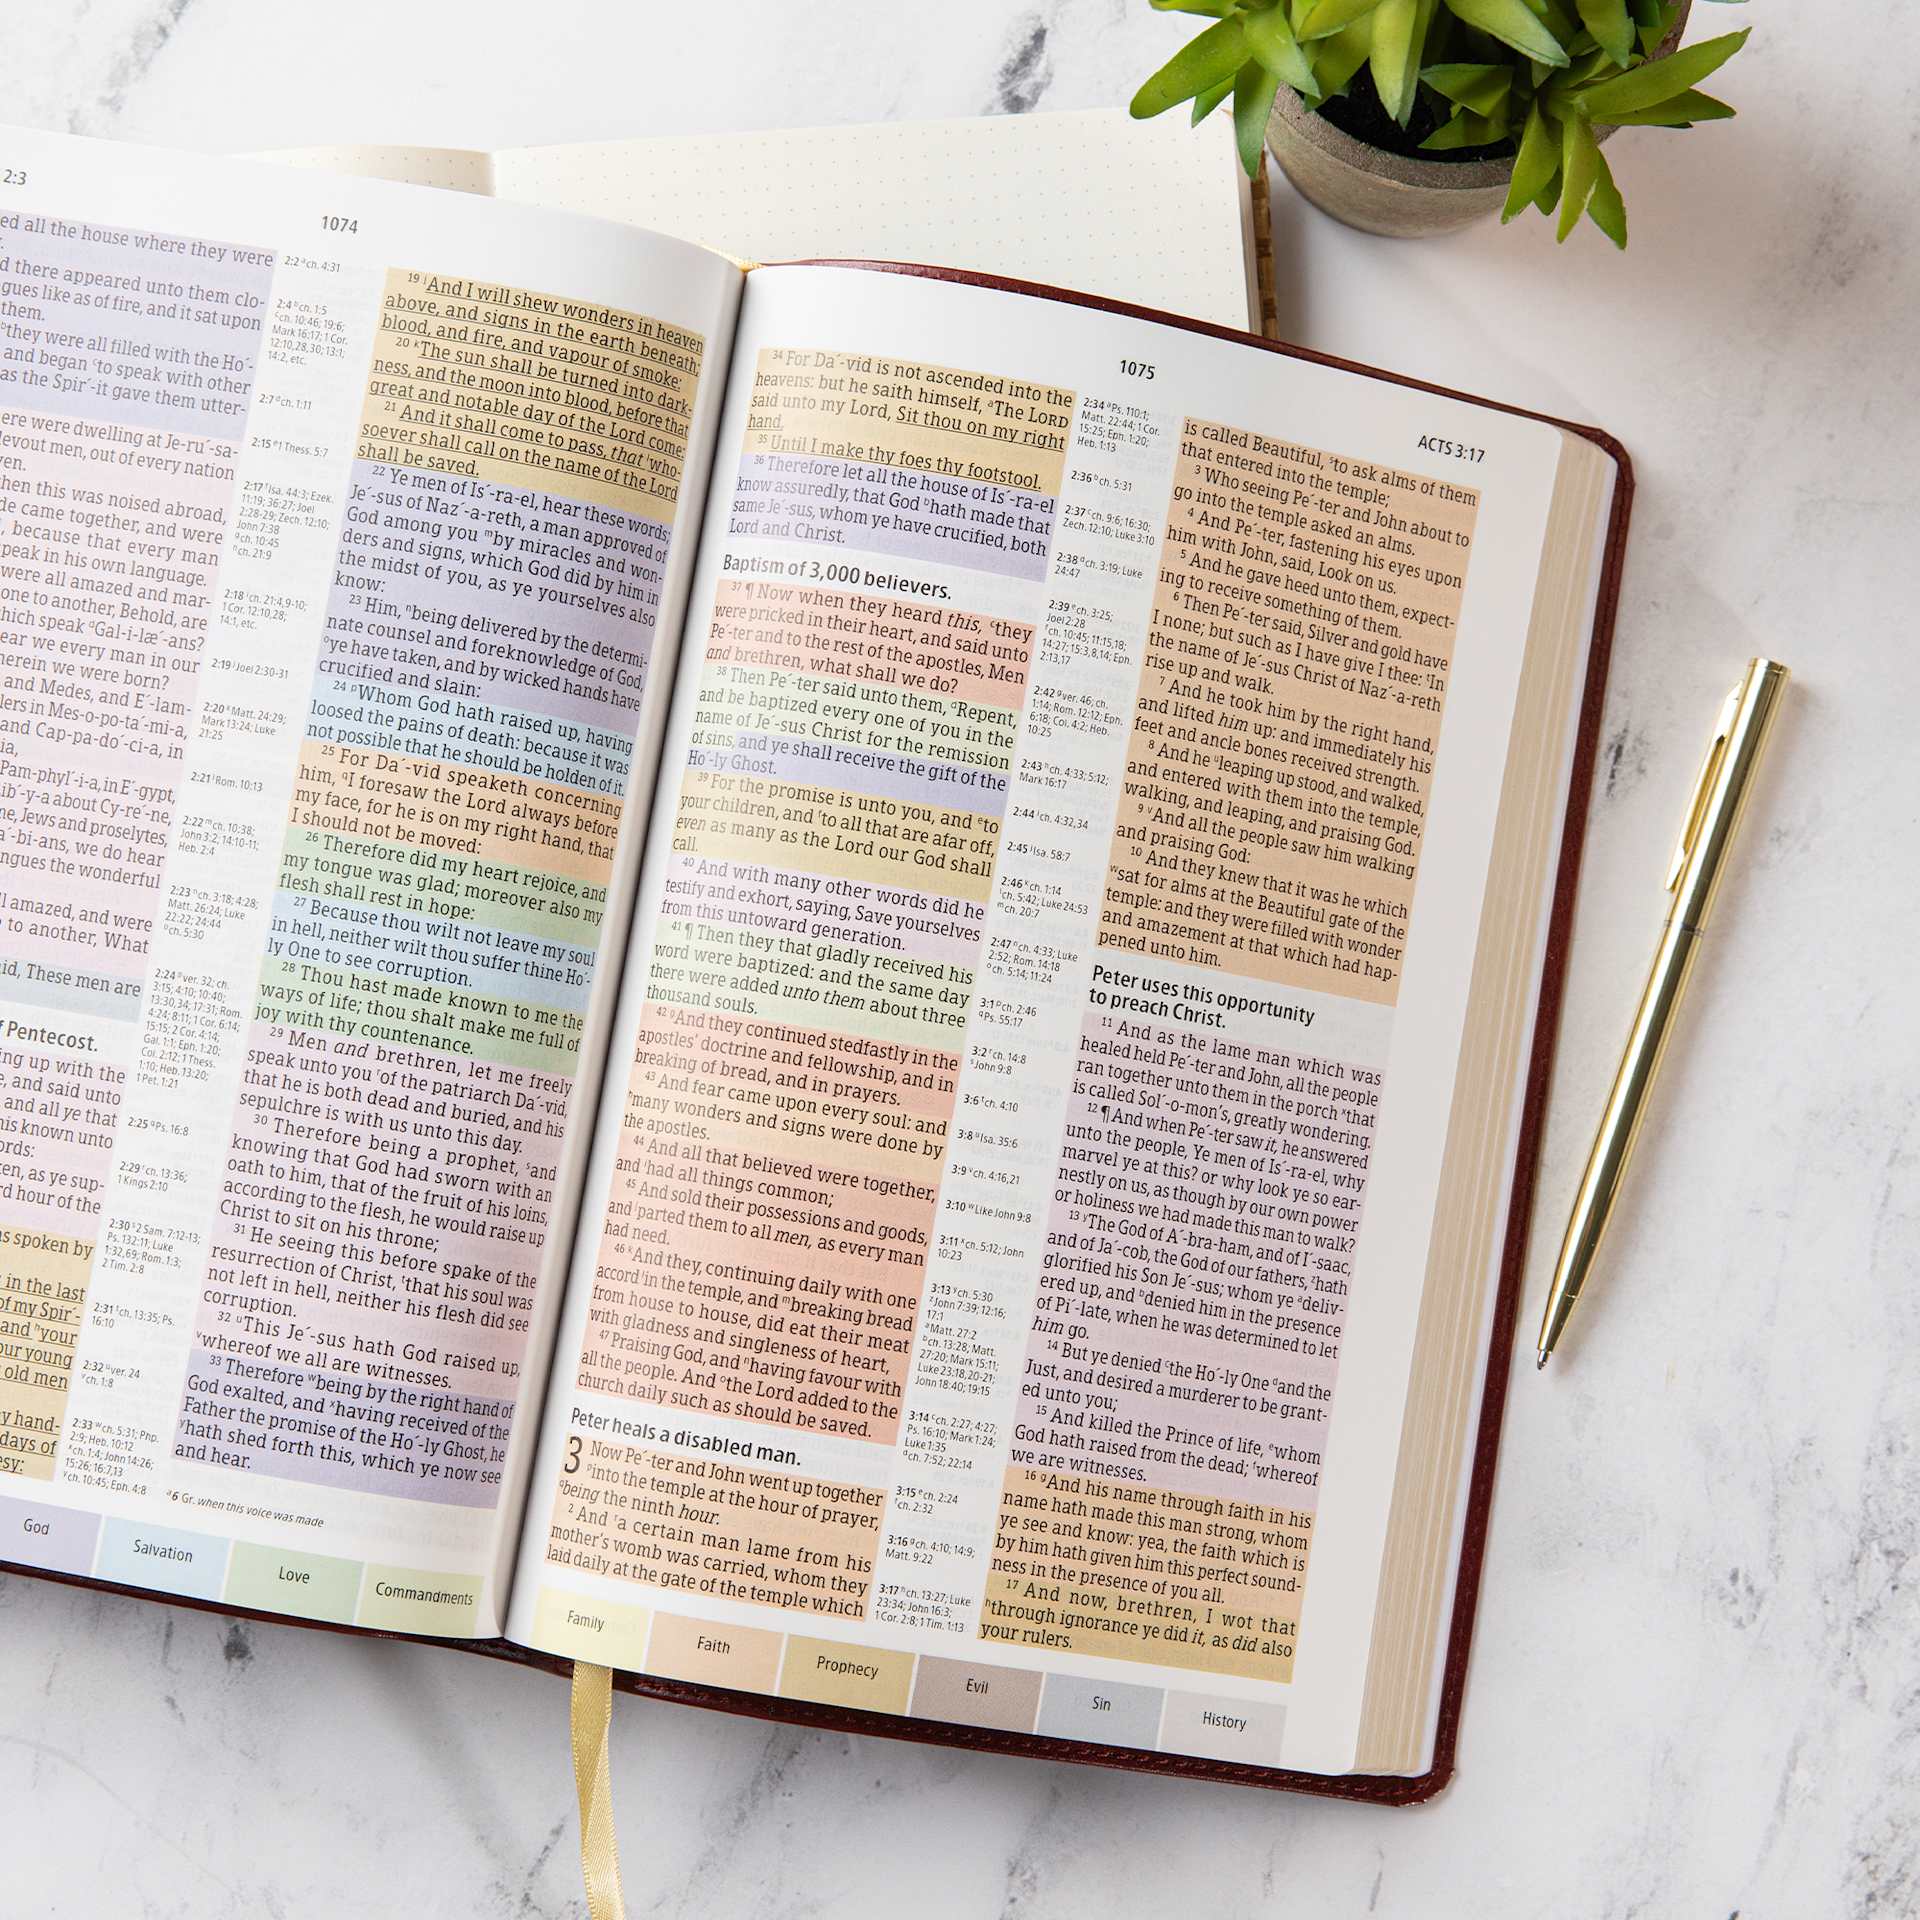 2:3
1074
ed all the house where they were
d there appeared unto them clo-
gues like as of fire, and it sat upon
them.
ᵇthey were all filled with the Ho´-
and began ᶜto speak with other
as the Spir´-it gave them utter-
ere were dwelling at Je-ru´-sa-
devout men, out of every nation
ven.
hen this was noised abroad,
de came together, and were
, because that every man
peak in his own language.
were all amazed and mar-
one to another, Behold, are
hich speak ᵈGal-i-læ´-ans?
ear we every man in our
herein we were born?
and Medes, and E´-lam-
lers in Mes-o-po-ta´-mi-a,
and Cap-pa-do´-ci-a, in
ia,
Pam-phyl´-i-a, in E´-gypt,
Lib´-y-a about Cy-re´-ne,
me, Jews and proselytes,
a´-bi-ans, we do hear
ngues the wonderful
l amazed, and were
to another, What
aid, These men are
f Pentecost.
ing up with the
e, and said unto
and all ye that
his known unto
ords:
ken, as ye sup-
rd hour of the
as spoken by
in the last
of my Spir´-
and ʰyour
our young
old men
y hand-
days of
esy:
2:2 ᵃch. 4:31
2:4 ᵇch. 1:5
ᶜch. 10:46; 19:6;
Mark 16:17; 1 Cor.
12:10,28,30; 13:1;
14:2, etc.
2:7 ᵈch. 1:11
2:15 ᵉ1 Thess. 5:7
2:17 ᶠIsa. 44:3; Ezek.
11:19; 36:27; Joel
2:28-29; Zech. 12:10;
John 7:38
ᵍch. 10:45
ʰch. 21:9
2:18 ⁱch. 21:4,9-10;
1 Cor. 12:10,28;
14:1, etc.
2:19 ʲJoel 2:30-31
2:20 ᵏMatt. 24:29;
Mark 13:24; Luke
21:25
2:21 ˡRom. 10:13
2:22 ᵐch. 10:38;
John 3:2; 14:10-11;
Heb. 2:4
2:23 ⁿch. 3:18; 4:28;
Matt. 26:24; Luke
22:22; 24:44
ᵒch. 5:30
2:24 ᵖver. 32; ch.
3:15; 4:10; 10:40;
13:30,34; 17:31; Rom.
4:24; 8:11; 1 Cor. 6:14;
15:15; 2 Cor. 4:14;
Gal. 1:1; Eph. 1:20;
Col. 2:12; 1 Thess.
1:10; Heb. 13:20;
1 Pet. 1:21
2:25 ᑫPs. 16:8
2:29 ʳch. 13:36;
1 Kings 2:10
2:30 ˢ2 Sam. 7:12-13;
Ps. 132:11; Luke
1:32,69; Rom. 1:3;
2 Tim. 2:8
2:31 ᵗch. 13:35; Ps.
16:10
2:32 ᵘver. 24
ᵛch. 1:8
2:33 ʷch. 5:31; Php.
2:9; Heb. 10:12
ˣch. 1:4; John 14:26;
15:26; 16:7,13
ʸch. 10:45; Eph. 4:8
19 ʲAnd I will shew wonders in heaven
above, and signs in the earth beneath;
blood, and fire, and vapour of smoke:
20 ᵏThe sun shall be turned into dark-
ness, and the moon into blood, before that
great and notable day of the Lord come:
21 And it shall come to pass, that ˡwho-
soever shall call on the name of the Lord
shall be saved.
22 Ye men of Is´-ra-el, hear these words;
Je´-sus of Naz´-a-reth, a man approved of
God among you ᵐby miracles and won-
ders and signs, which God did by him in
the midst of you, as ye yourselves also
know:
23 Him, ⁿbeing delivered by the determi-
nate counsel and foreknowledge of God,
ᵒye have taken, and by wicked hands have
crucified and slain:
24 ᵖWhom God hath raised up, having
loosed the pains of death: because it was
not possible that he should be holden of it.
25 For Da´-vid speaketh concerning
him, ᑫI foresaw the Lord always before
my face, for he is on my right hand, that
I should not be moved:
26 Therefore did my heart rejoice, and
my tongue was glad; moreover also my
flesh shall rest in hope:
27 Because thou wilt not leave my soul
in hell, neither wilt thou suffer thine Ho´-
ly One to see corruption.
28 Thou hast made known to me the
ways of life; thou shalt make me full of
joy with thy countenance.
29 Men and brethren, let me freely
speak unto you ʳof the patriarch Da´-vid,
that he is both dead and buried, and his
sepulchre is with us unto this day.
30 Therefore being a prophet, ˢand
knowing that God had sworn with an
oath to him, that of the fruit of his loins,
according to the flesh, he would raise up
Christ to sit on his throne;
31 He seeing this before spake of the
resurrection of Christ, ᵗthat his soul was
not left in hell, neither his flesh did see
corruption.
32 ᵘThis Je´-sus hath God raised up,
ᵛwhereof we all are witnesses.
33 Therefore ʷbeing by the right hand of
God exalted, and ˣhaving received of the
Father the promise of the Ho´-ly Ghost, he
ʸhath shed forth this, which ye now see
and hear.
ᵃ6 Gr. when this voice was made
God
Salvation
Love
Commandments
1075
ACTS 3:17
34 For Da´-vid is not ascended into the
heavens: but he saith himself, ᵃThe LORD
said unto my Lord, Sit thou on my right
hand,
35 Until I make thy foes thy footstool.
36 Therefore let all the house of Is´-ra-el
know assuredly, that God ᵇhath made that
same Je´-sus, whom ye have crucified, both
Lord and Christ.
Baptism of 3,000 believers.
37 ¶ Now when they heard this, ᶜthey
were pricked in their heart, and said unto
Pe´-ter and to the rest of the apostles, Men
and brethren, what shall we do?
38 Then Pe´-ter said unto them, ᵈRepent,
and be baptized every one of you in the
name of Je´-sus Christ for the remission
of sins, and ye shall receive the gift of the
Ho´-ly Ghost.
39 For the promise is unto you, and ᵉto
your children, and ᶠto all that are afar off,
even as many as the Lord our God shall
call.
40 And with many other words did he
testify and exhort, saying, Save yourselves
from this untoward generation.
41 ¶ Then they that gladly received his
word were baptized: and the same day
there were added unto them about three
thousand souls.
42 ᵍAnd they continued stedfastly in the
apostles' doctrine and fellowship, and in
breaking of bread, and in prayers.
43 And fear came upon every soul: and
ʰmany wonders and signs were done by
the apostles.
44 And all that believed were together,
and ⁱhad all things common;
45 And sold their possessions and goods,
and ʲparted them to all men, as every man
had need.
46 ᵏAnd they, continuing daily with one
accord ˡin the temple, and ᵐbreaking bread
from house to house, did eat their meat
with gladness and singleness of heart,
47 Praising God, and ⁿhaving favour with
all the people. And ᵒthe Lord added to the
church daily such as should be saved.
Peter heals a disabled man.
3 Now Pe´-ter and John went up together
ᵖinto the temple at the hour of prayer,
ᑫbeing the ninth hour.
2 And ʳa certain man lame from his
mother's womb was carried, whom they
laid daily at the gate of the temple which
2:34 ᵃPs. 110:1;
Matt. 22:44; 1 Cor.
15:25; Eph. 1:20;
Heb. 1:13
2:36 ᵇch. 5:31
2:37 ᶜch. 9:6; 16:30;
Zech. 12:10; Luke 3:10
2:38 ᵈch. 3:19; Luke
24:47
2:39 ᵉch. 3:25;
Joel 2:28
ᶠch. 10:45; 11:15,18;
14:27; 15:3,8,14; Eph.
2:13,17
2:42 ᵍver. 46; ch.
1:14; Rom. 12:12; Eph.
6:18; Col. 4:2; Heb.
10:25
2:43 ʰch. 4:33; 5:12;
Mark 16:17
2:44 ⁱch. 4:32,34
2:45 ʲIsa. 58:7
2:46 ᵏch. 1:14
ˡch. 5:42; Luke 24:53
ᵐch. 20:7
2:47 ⁿch. 4:33; Luke
2:52; Rom. 14:18
ᵒch. 5:14; 11:24
3:1 ᵖch. 2:46
ᑫPs. 55:17
3:2 ʳch. 14:8
ˢJohn 9:8
3:6 ᵗch. 4:10
3:8 ᵘIsa. 35:6
3:9 ᵛch. 4:16,21
3:10 ʷLike John 9:8
3:11 ˣch. 5:12; John
10:23
3:13 ʸch. 5:30
ᶻJohn 7:39; 12:16;
17:1
ᵃMatt. 27:2
ᵇch. 13:28; Matt.
27:20; Mark 15:11;
Luke 23:18,20-21;
John 18:40; 19:15
3:14 ᶜch. 2:27; 4:27;
Ps. 16:10; Mark 1:24;
Luke 1:35
ᵈch. 7:52; 22:14
3:15 ᵉch. 2:24
ᶠch. 2:32
3:16 ᵍch. 4:10; 14:9;
Matt. 9:22
3:17 ʰch. 13:27; Luke
23:34; John 16:3;
1 Cor. 2:8; 1 Tim. 1:13
is called Beautiful, ˢto ask alms of them
that entered into the temple;
3 Who seeing Pe´-ter and John about to
go into the temple asked an alms.
4 And Pe´-ter, fastening his eyes upon
him with John, said, Look on us.
5 And he gave heed unto them, expect-
ing to receive something of them.
6 Then Pe´-ter said, Silver and gold have
I none; but such as I have give I thee: ᵗIn
the name of Je´-sus Christ of Naz´-a-reth
rise up and walk.
7 And he took him by the right hand,
and lifted him up: and immediately his
feet and ancle bones received strength.
8 And he ᵘleaping up stood, and walked,
and entered with them into the temple,
walking, and leaping, and praising God.
9 ᵛAnd all the people saw him walking
and praising God:
10 And they knew that it was he which
ʷsat for alms at the Beautiful gate of the
temple: and they were filled with wonder
and amazement at that which had hap-
pened unto him.
Peter uses this opportunity
to preach Christ.
11 And as the lame man which was
healed held Pe´-ter and John, all the people
ran together unto them in the porch ˣthat
is called Sol´-o-mon's, greatly wondering.
12 ¶ And when Pe´-ter saw it, he answered
unto the people, Ye men of Is´-ra-el, why
marvel ye at this? or why look ye so ear-
nestly on us, as though by our own power
or holiness we had made this man to walk?
13 ʸThe God of A´-bra-ham, and of I´-saac,
and of Ja´-cob, the God of our fathers, ᶻhath
glorified his Son Je´-sus; whom ye ᵃdeliv-
ered up, and ᵇdenied him in the presence
of Pi´-late, when he was determined to let
him go.
14 But ye denied ᶜthe Ho´-ly One ᵈand the
Just, and desired a murderer to be grant-
ed unto you;
15 And killed the Prince of life, ᵉwhom
God hath raised from the dead; ᶠwhereof
we are witnesses.
16 ᵍAnd his name through faith in his
name hath made this man strong, whom
ye see and know: yea, the faith which is
by him hath given him this perfect sound-
ness in the presence of you all.
17 And now, brethren, I wot that
ʰthrough ignorance ye did it, as did also
your rulers.
Family
Faith
Prophecy
Evil
Sin
History